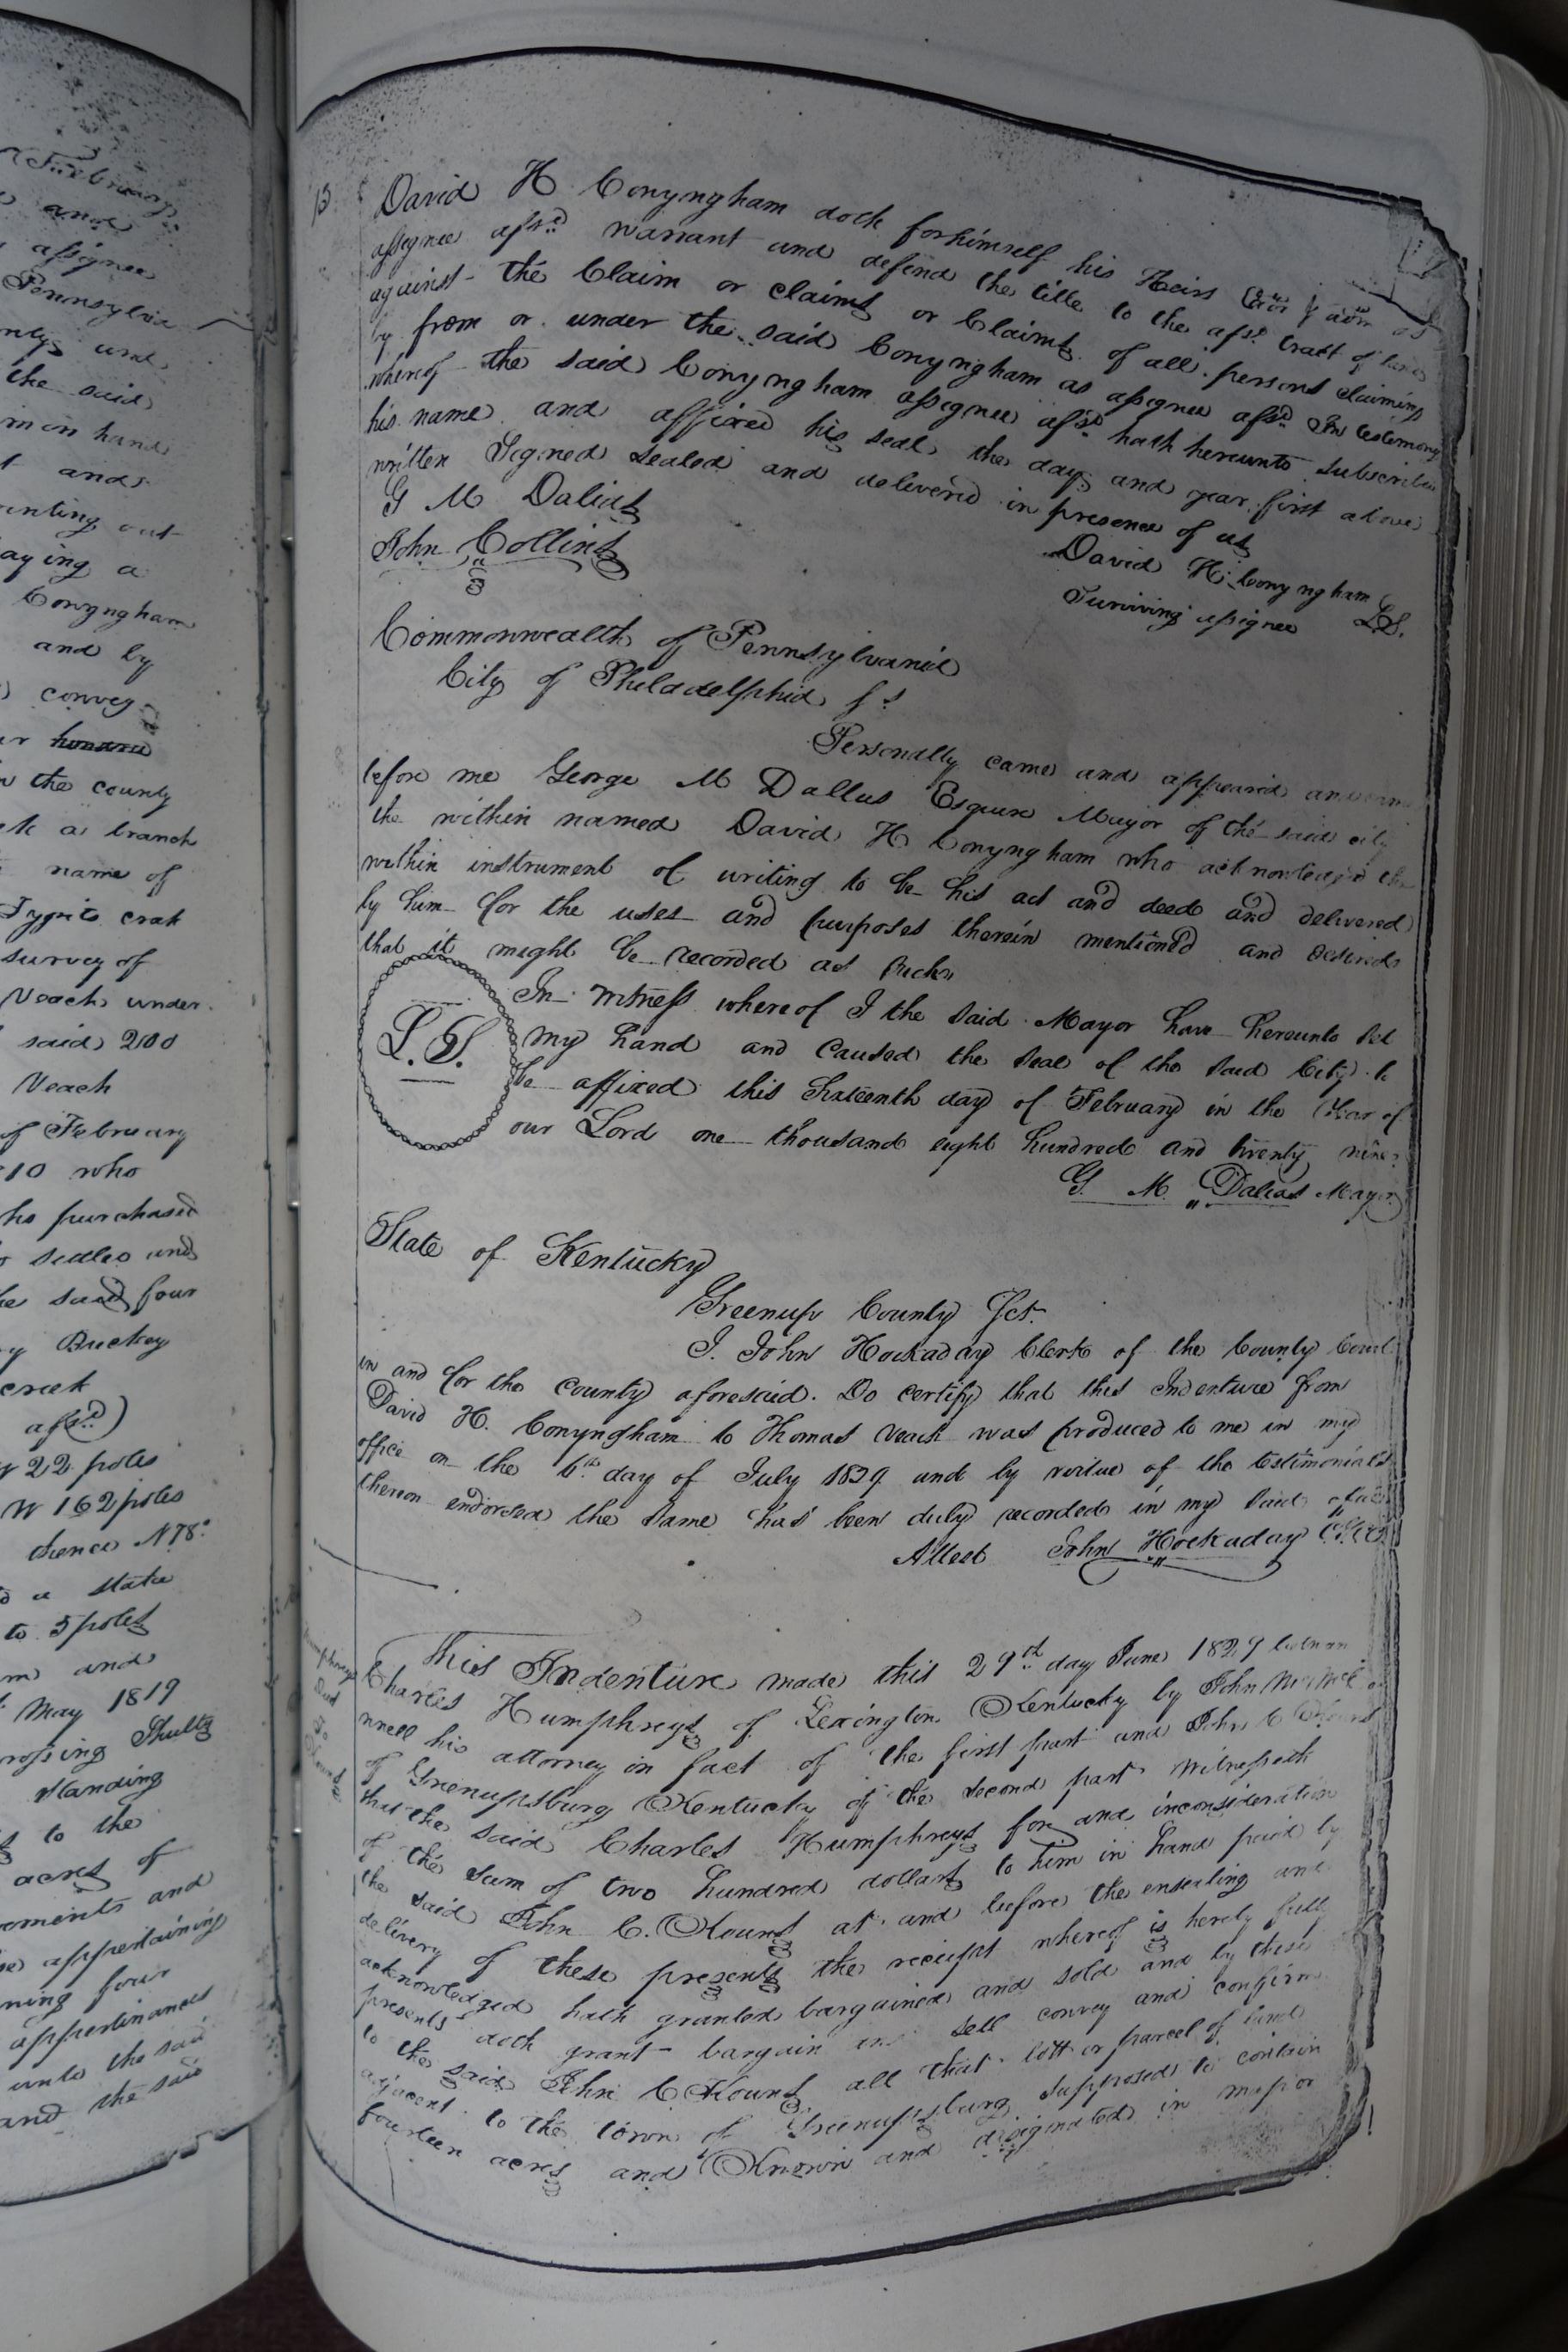 February
and
assignee
Pennsylvia
and
the said
him in hand
and
anting out
aying a
Conyngham
and by
convey
hundred
the county
a branch
name of
Tygirts crek
survey of
Veach under
said 200
Veach
of February
10 who
who purchased
settles and
he said four
Buckey
creek
afsd)
W 22 poles
W 162 poles
thence N78°
a stake
to 5 poles
and
May 1819
crossing Shultz
standing
to the
acres of
and
appertaining
four
appertinances
unto the said
and the said
13
David H Conyngham doth for himself his Heirs Exrs & adm as
assignee afsd warrant and defend the title to the afsd tract of land
against the Claim or claims or Claims of all persons claiming
by from or under the said Conyngham as assignee afsd In testimony
whereof the said Conyngham assignee afsd hath hereunto subscribed
his name and affixed his seal the day and year first above
written Signed sealed and delivered in presence of us
G M Dalias
David H. Conyngham
John Collins
Surviving assignee LS.
Commonwealth of Pennsylvania
City of Philadelphia ss
Personally came and appeared
before me George M Dallus Esqure Mayor of the said city
the within named David H Conyngham who acknowledged the
within instrument of writing to be his act and deed and delivered
by him for the uses and purposes therein mentioned and desired
that it might be recorded as such
L.S.
In witness whereof I the said Mayor have hereunto set
my hand and caused the seal of the said City to
be affixed this sixteenth day of February in the Year of
our Lord one thousand eight hundred and twenty nine
G. M. Dalias Mayor
State of Kentucky
Greenup County Sct.
I. John Hockaday Clerk of the County Court
in and for the county aforesaid. Do certify that this Indenture from
David H. Conyngham to Thomas Veach was produced to me in my
office on the 6th day of July 1829 and by virtue of the testimonials
thereon endorsed the same has been duly recorded in my said office
Attest John Hockaday
Humphreys
Deed
To
This Indenture made this 29th day June 1829 between
Charles Humphreys of Lexington Kentucky by John
nnell his attorney in fact of the first part and John C Kouns
of Greenupsburg Kentucky of the second part Witnesseth
that the said Charles Humphreys for and inconsideration
of the sum of two hundred dollars to him in hand paid by
the said John C. Kouns at and before the ensealing and
delivery of these presents the receipt whereof is hereby fully
acknowledged hath granted bargained and sold and by these
presents doth grant bargain and sell convey and confirm
to the said John C Kouns all that lott or parcel of land
adjacent to the town of Greenupsburg supposed to contain
fourteen acres and Known and designated in map or